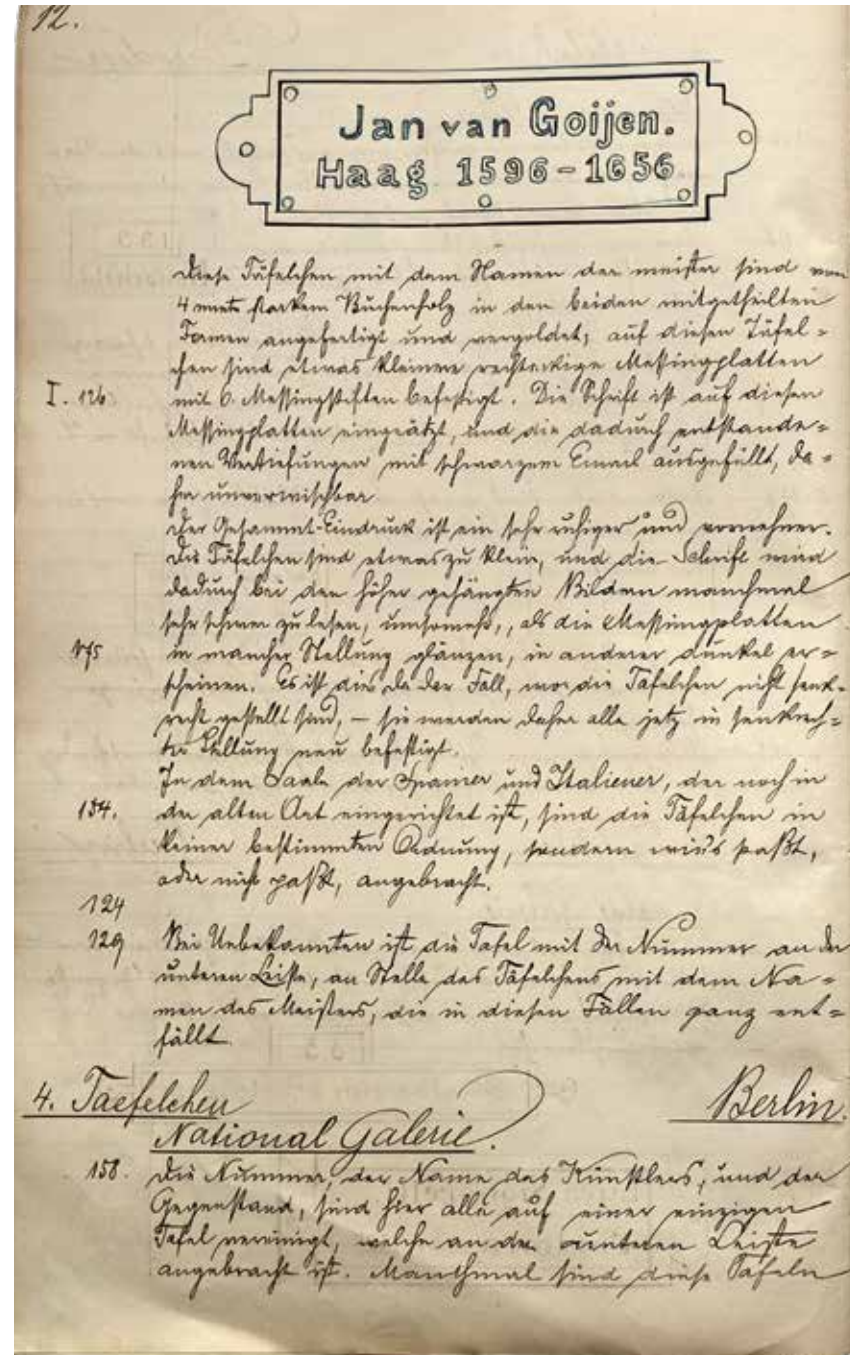 12.
Jan van Goijen.
Haag 1596-1656
Diese Täfelchen mit dem Namen der meister sind von
4 mm starkem Buchenholz in den beiden mitgetheilten
Formen angefertigt und vergoldet; auf diesen Täfel=
chen sind etwas kleinere rechteckige Messingplatten
I. 126 mit 6 Messingstiften befestigt. Die Schrift ist auf diesen
Messingplatten eingeätzt, und die dadurch entstande=
nen Vertiefungen mit schwarzem Email ausgefüllt, da=
her unverwischbar
Der Gesammt-Eindruck ist ein sehr ruhiger und vornehmer.
Die Täfelchen sind etwas zu klein, und die Schrift wird
dadurch bei den höher gehängten Bildern manchmal
sehr schwer zu lesen, umsomehr, als die Messingplatten
175 in mancher Stellung glänzen, in anderer dunkel er=
scheinen. Es ist dies da der Fall, wo die Täfelchen nicht senk=
recht gestellt sind, — sie werden daher alle jetz in senkrech=
ter Stellung neu befestigt.
In dem Saale der Spanier und Italiener, der noch in
134. der alten Art eingerichtet ist, sind die Täfelchen in
keiner bestimmten Ordnung, sondern wie's paßt,
oder nicht paßt, angebracht.
124
129 Bei Unbekannten ist die Tafel mit der Nummer an der
unteren Leiste, an Stelle des Täfelchens mit dem Na=
men des Meisters, die in diesen Fällen ganz ent=
fällt.
4. Taefelchen Berlin.
National Galerie.
158. Die Nummer, der Name des Künstlers, und der
Gegenstand, sind hier alle auf einer einzigen
Tafel vereinigt, welche an der unteren Leiste
angebracht ist. Manchmal sind diese Tafeln